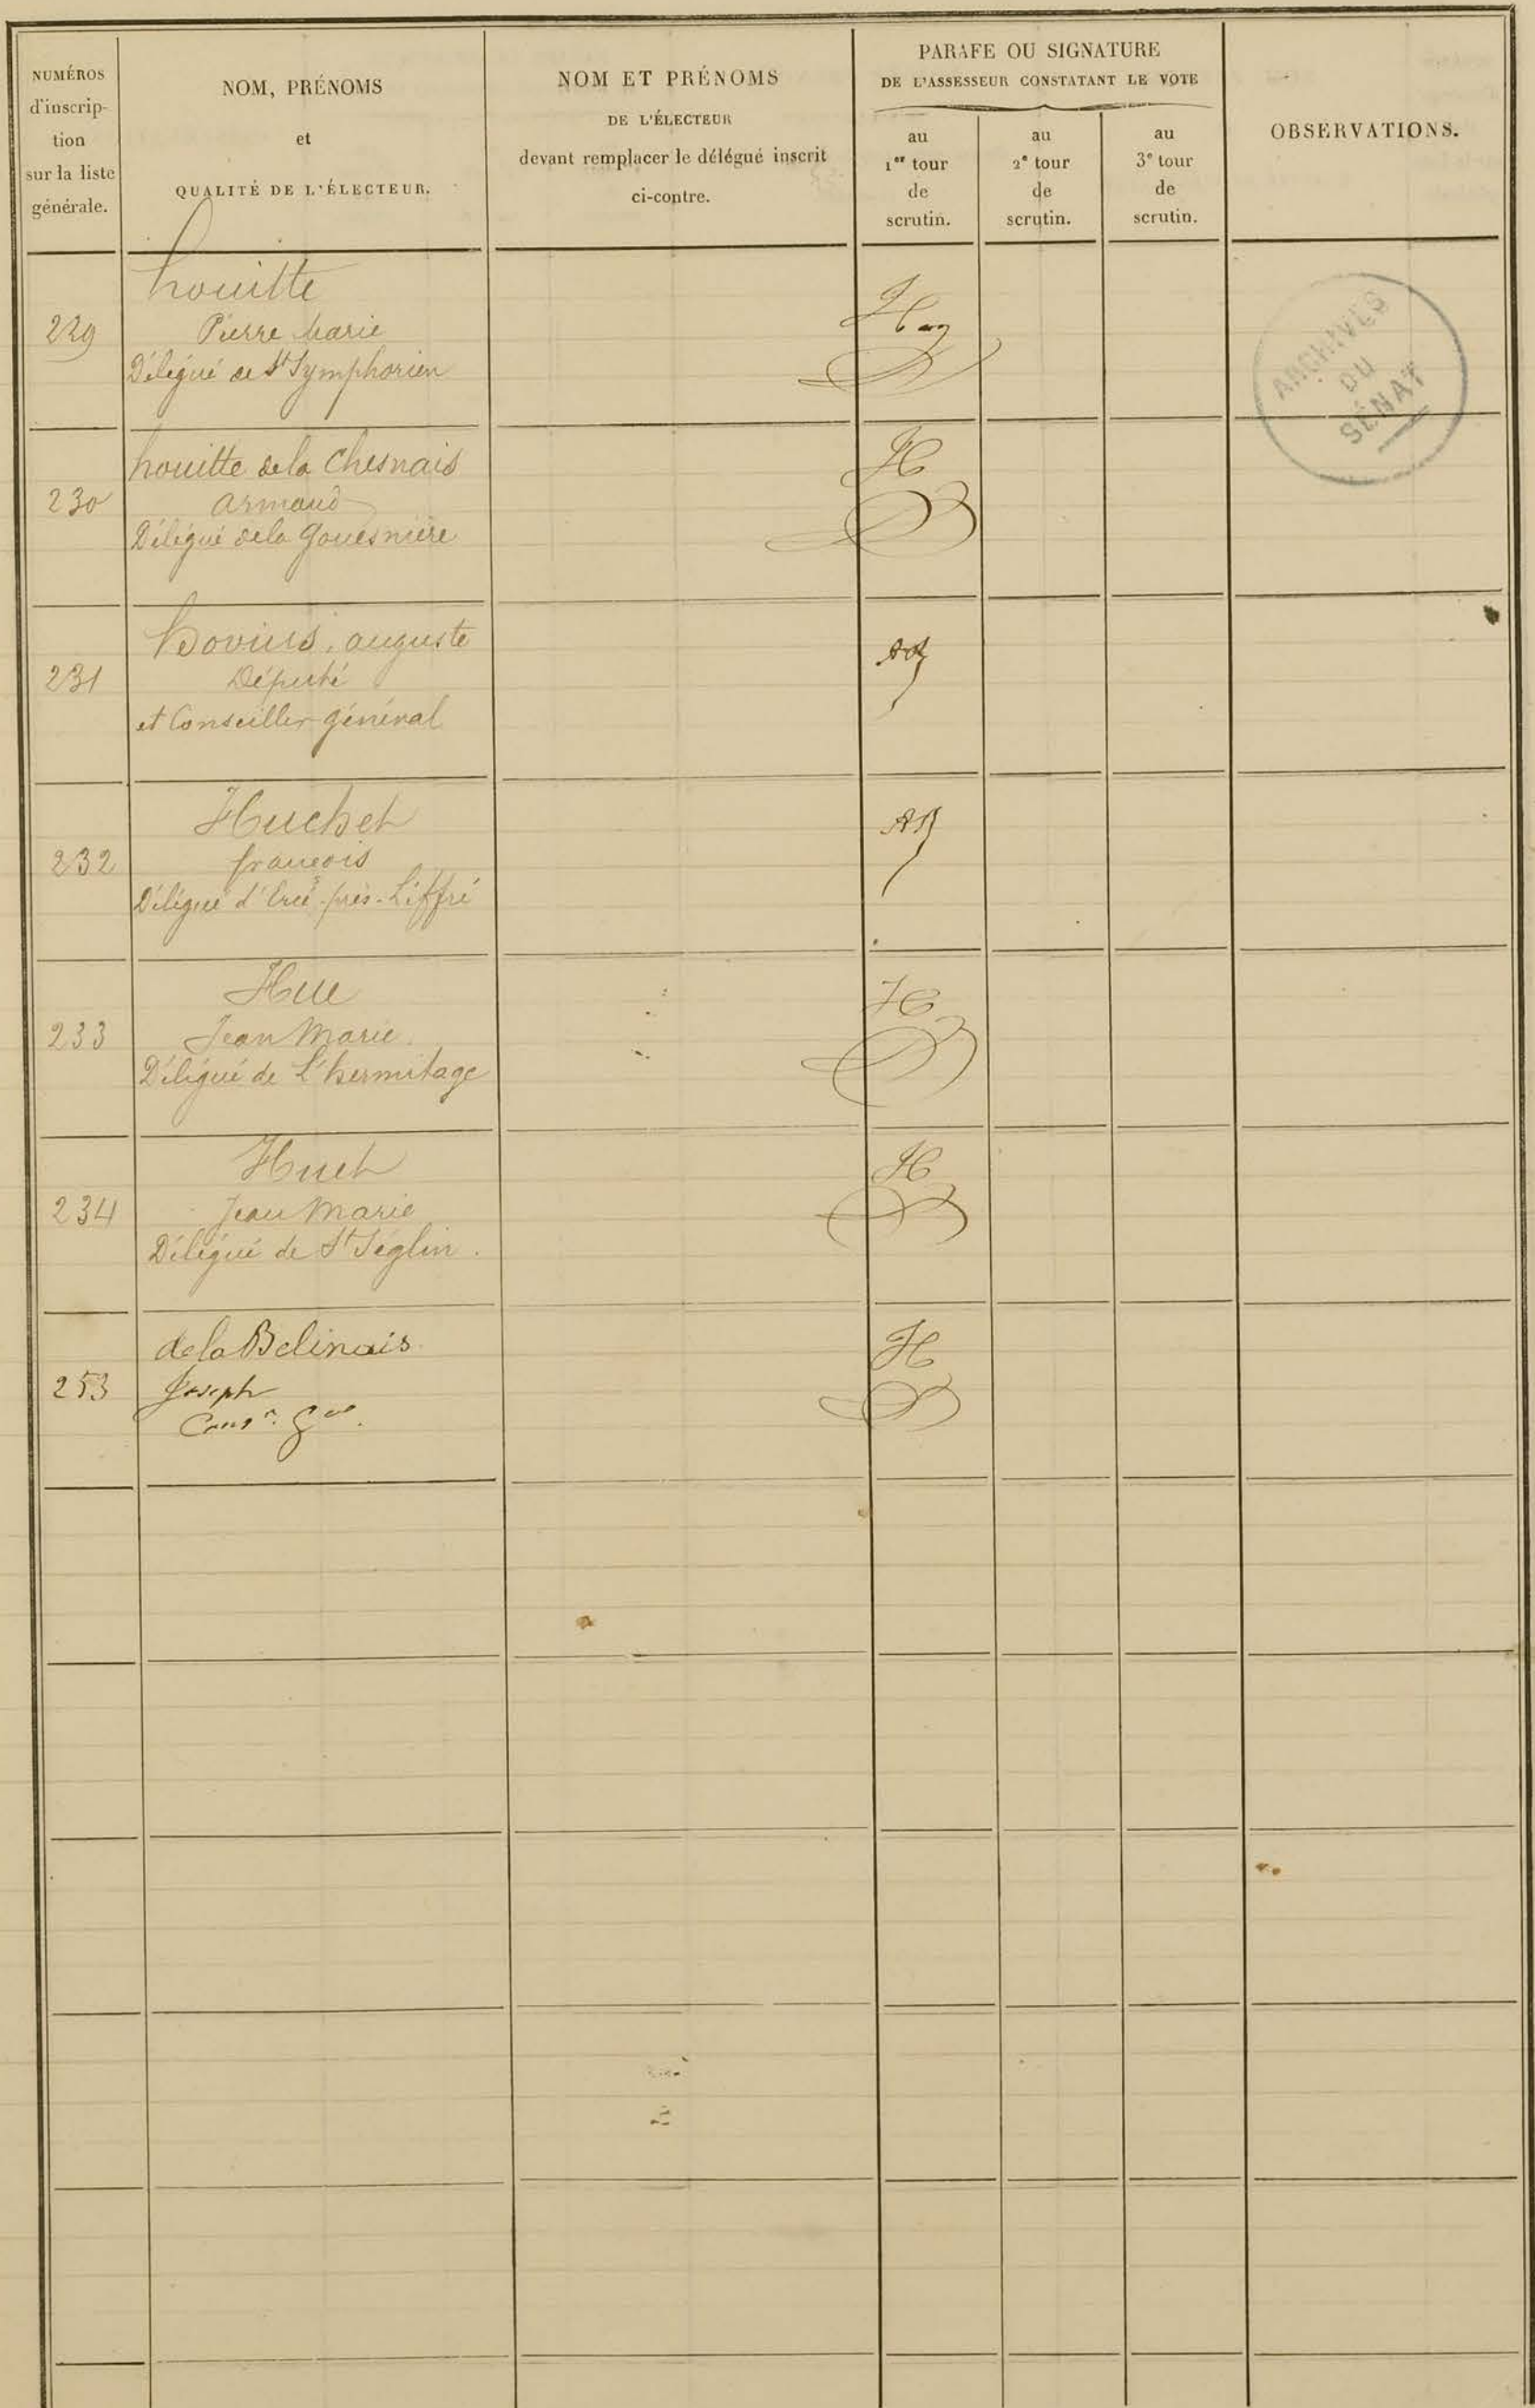 NUMÉROS
d'inscrip-
tion
sur la liste
générale.
NOM, PRÉNOMS
et
QUALITÉ DE L'ÉLECTEUR.
NOM ET PRÉNOMS
DE L'ÉLECTEUR
devant remplacer le délégué inscrit
ci-contre.
PARAFE OU SIGNATURE
DE L'ASSESSEUR CONSTATANT LE VOTE
au
1er tour
de
scrutin.
au
2e tour
de
scrutin.
au
3e tour
de
scrutin.
OBSERVATIONS.
ARCHIVES
DU
SÉNAT
229
houitte
Pierre Marie
Délégué de St Symphorien
230
houitte de la Chesnais
armand
Délégué de la Gouesnière
H
231
hovius, auguste
Député
et Conseiller général
232
Huchet
françois
Délégué d'Ercé-près-Liffré
233
Hue
Jean Marie
Délégué de L'hermitage
H
234
Huet
Jean Marie
Délégué de St Séglin.
H
253
de la Belinais
Joseph
Consr. Gal.
H